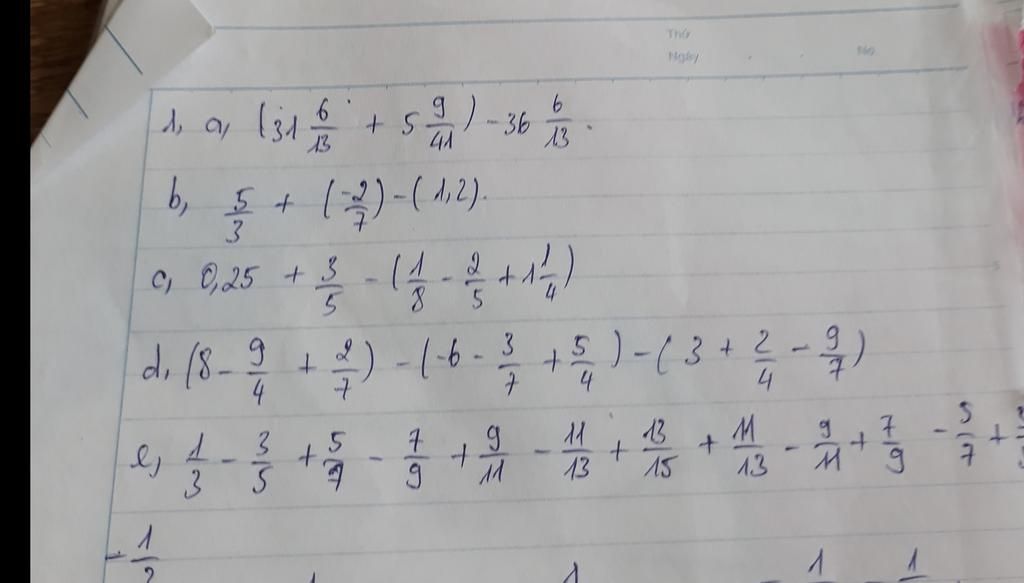 Thứ
Ngày . . No.
1, a, (31 6/13 + 5 9/41) - 36 6/13.
b, 5/3 + (-2/7) - (1,2).
c, 0,25 + 3/5 - (1/8 - 2/5 + 1 1/4)
d, (8 - 9/4 + 2/7) - (-6 - 3/7 + 5/4) - (3 + 2/4 - 9/7)
e, 1/3 - 3/5 + 5/7 - 7/9 + 9/11 - 11/13 + 13/15 + 11/13 - 9/11 + 7/9 - 5/7 +